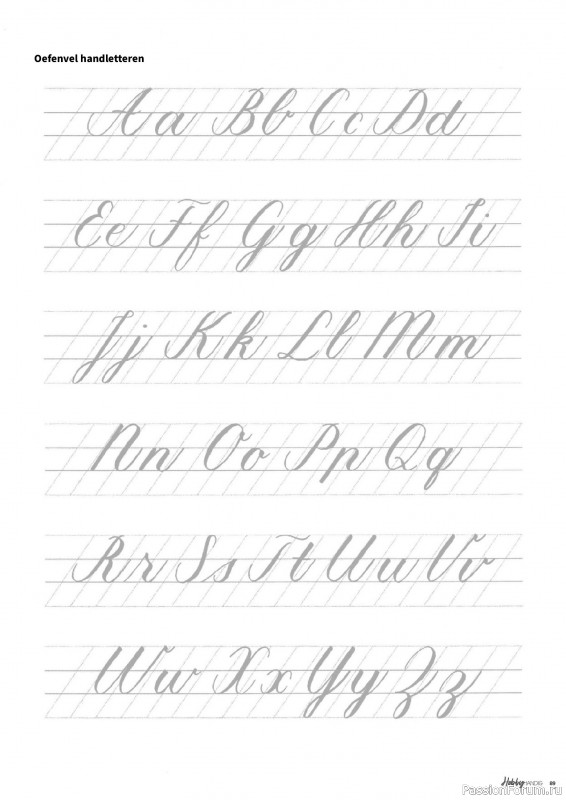 Oefenvel handletteren
Aa Bb Cc Dd
Ee Ff Gg Hh Ii
Jj Kk Ll Mm
Nn Oo Pp Qq
Rr Ss Tt Uu Vv
Ww Xx Yy Zz
HobbyHANDIG 89
PassionForum.ru